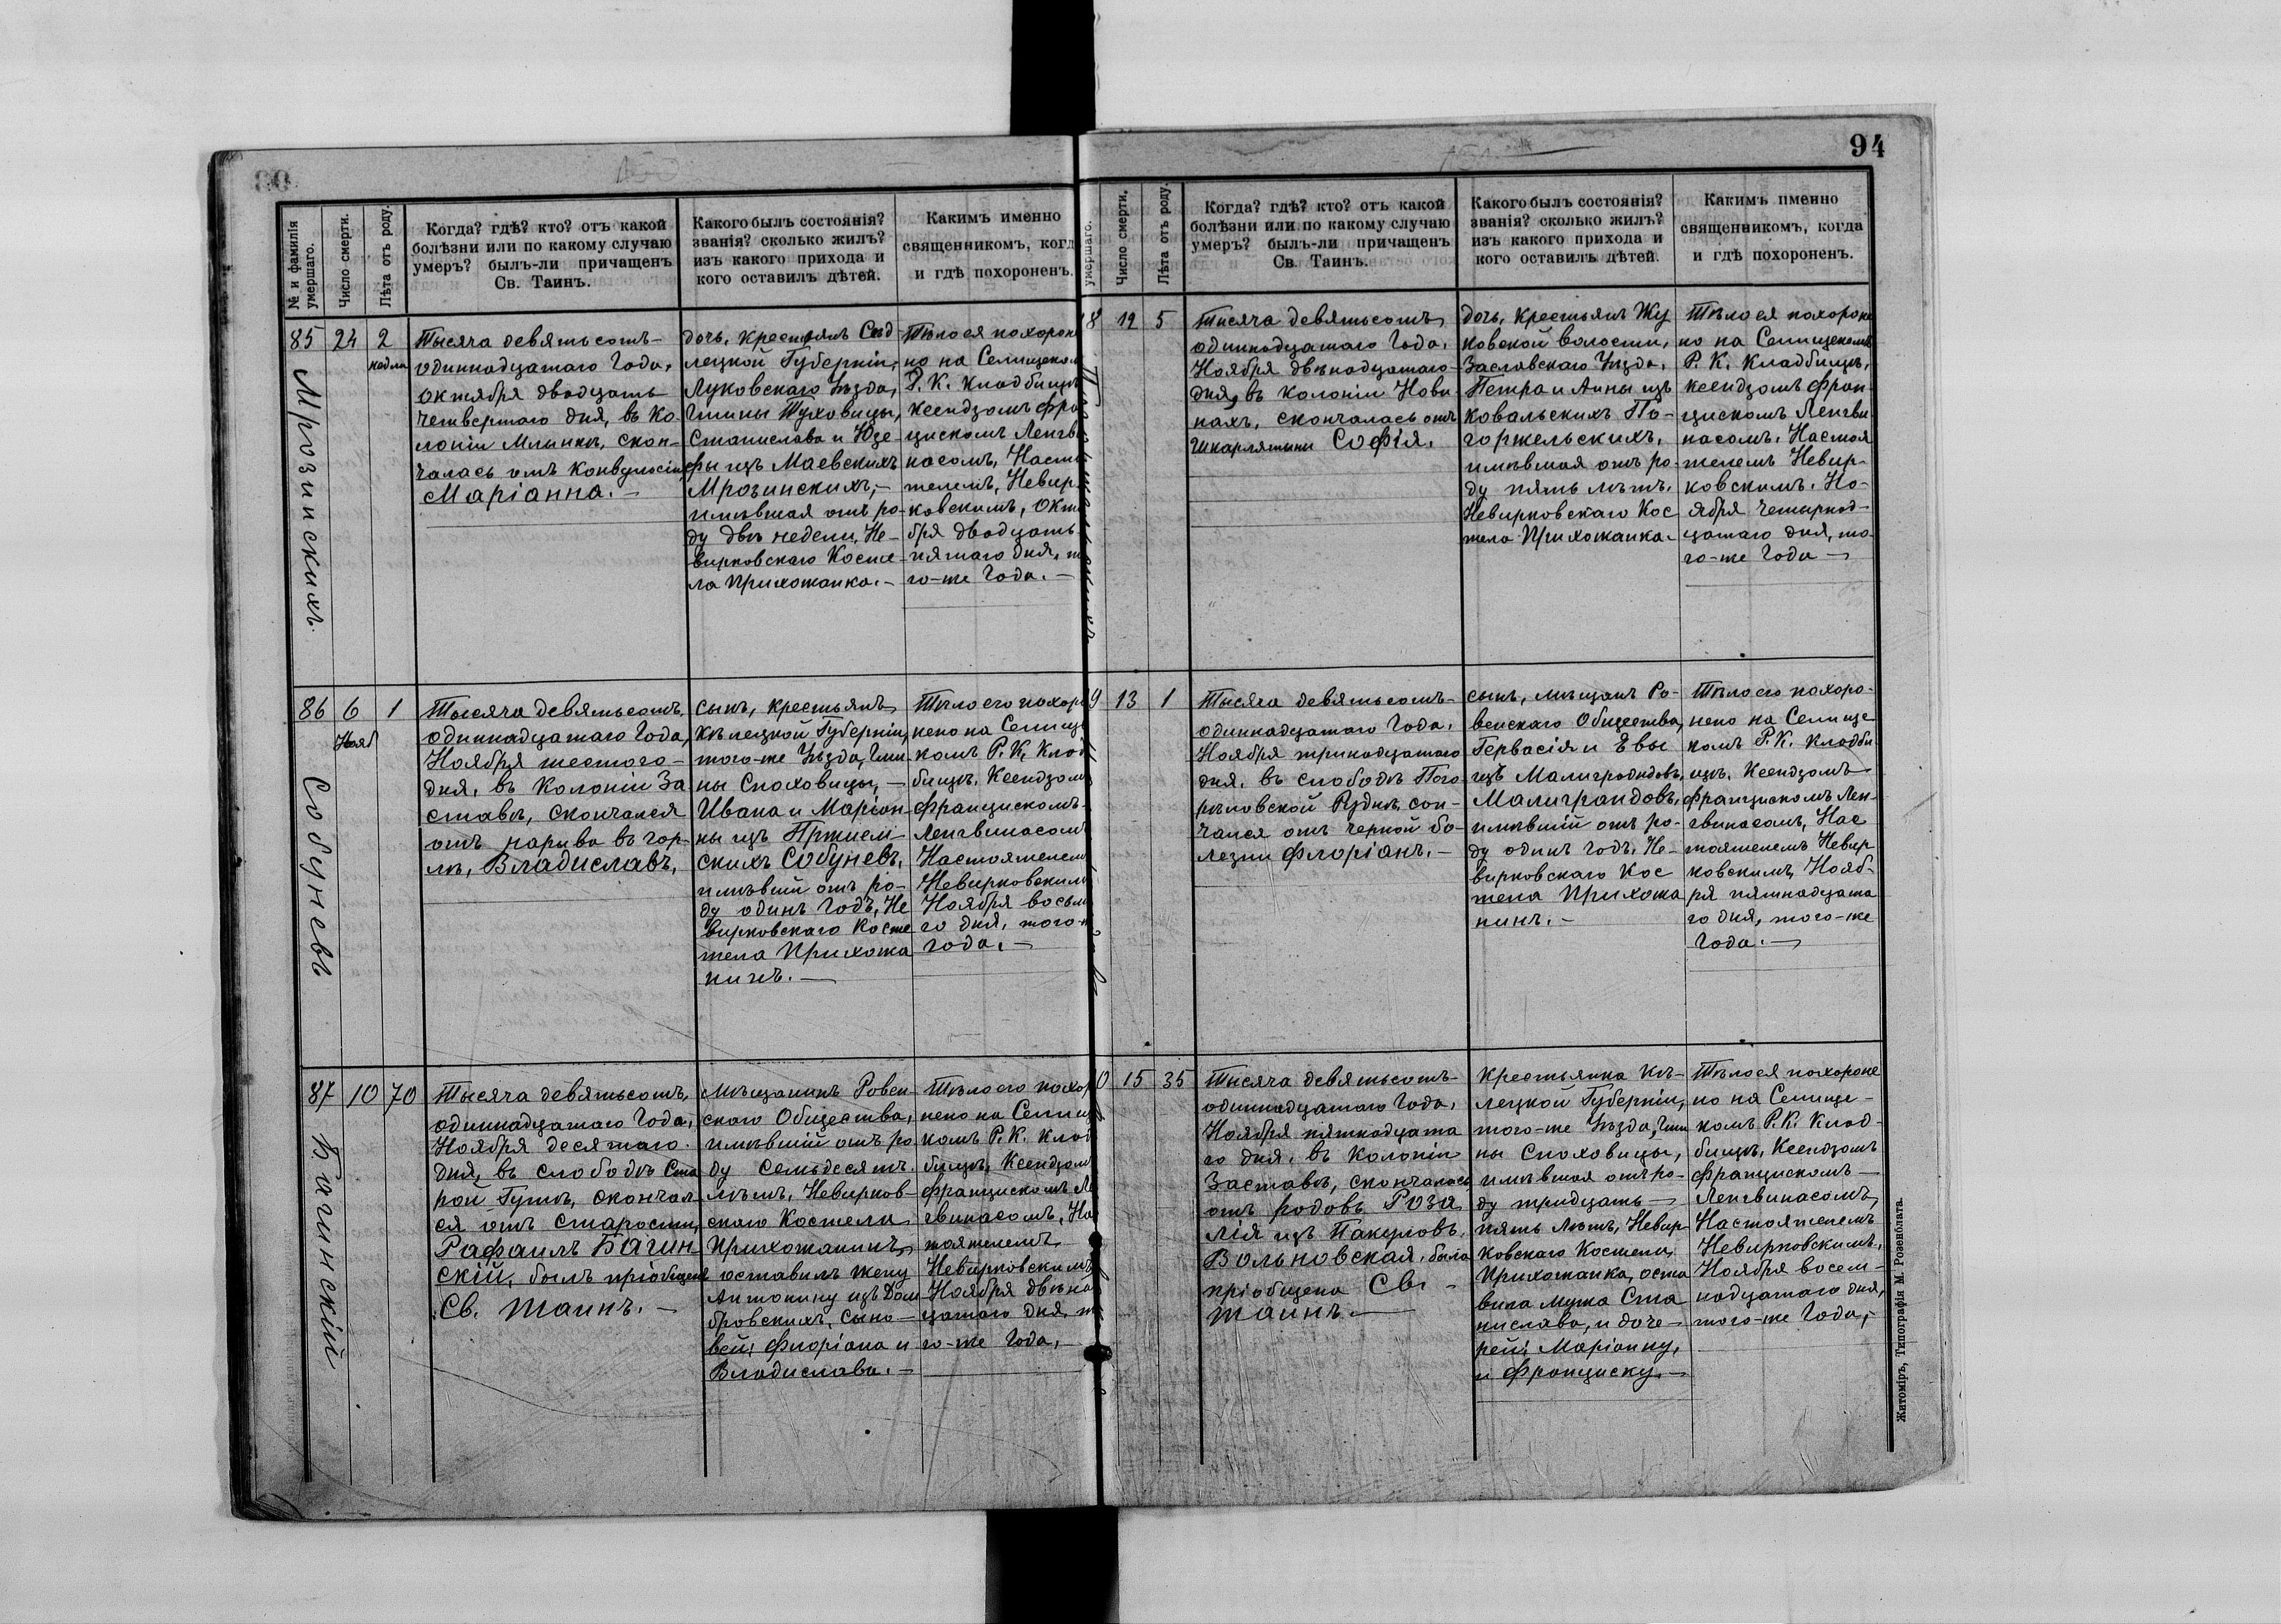 94
№ и фамилія умершаго.
Число смерти.
Лѣта отъ роду.
Когда? гдѣ? кто? отъ какой
болѣзни или по какому случаю
умеръ? былъ-ли причащенъ
Св. Таинъ.
Какого былъ состоянія?
званія? сколько жилъ?
изъ какого прихода и
кого оставилъ дѣтей.
Каким​ъ именно
священникомъ, когд
и гдѣ похороненъ.
85
Мрозинскихъ.
24
2
недли
Тысяча девятьсотъ-
одиннадцатаго Года,
октября двадцать
четвертаго дня, въ Ко-
лоніи Млинкѣ, скон-
чалась отъ конвульсіи,
Маріанна.-
дочь, крестьянъ Сѣд-
лецкой Губерніи,
Луковскаго Уѣзда,
Гмины Туховицы,
Станислава и Юзе-
фы изъ Маевскихъ
Мрозинскихъ,-
имѣвшая отъ ро-
ду двѣ недели, Не-
вирковскаго Косте-
ла Прихожанка.-
Тѣло ея похорон
но на Селищеком
Р. К. кладбищѣ
ксендзомъ фра
цискомъ Ленгв
насомъ, Насто
телемъ, Невир
ковскимъ, Окт
бря двадцать
пятаго дня, т
го-же Года.-
86
Собуневъ
6
Нояб
1
Тысяча девятьсотъ
одиннадцатаго Года,
Ноября шестого-
дня, въ Колоніи За
ставѣ, скончался
отъ нарива въ гор-
лѣ, Владиславъ,
сынъ, крестьянъ
Кѣлецкой Губерніи,
того-же Уѣзда, Гми
ны Сноховицы,-
Ивана и Маріан-
ны изъ Пржием-
скихъ Собуневъ,
имѣвшій отъ ро-
ду одинъ годъ, Не
вирковскаго Косте
тела Прихожа
нинъ.-
Тѣло его похор
нено на Селище
комъ Р. К. Клад
бищѣ, Ксендзом
францискомъ-
Ленгвинасом
Настоятелем
Невирковским
Ноября восьм
го дня, того-ж
года.-
87
Багинскій
10
70
Тысяча девятьсотъ,
одиннадцатаго Года,
Ноября десятаго
дня, въ слободѣ Ста
рой Гутѣ, скончал
ся отъ старости,
Рафаилъ Багин
скій, былъ пріобщенъ
Св. Таинъ.-
Мѣщанинъ Ровен
скаго Общества,
имѣвшій отъ ро
ду семьдесятъ
лѣтъ, Невирков-
скаго Костела
Прихожанинъ,
оставилъ жену
Антонину изъ Дом
бровскихъ, сыно-
вей: Флоріана и
Владислава.-
Тѣло его похор
нено на Селищ
комъ Р. К. Клад
бищѣ, Ксендзом
францискомъ Ле
гвинасомъ, На
тоятелемъ
Невирковскимъ
Ноября двѣна
цатаго дня, т
го-же Года,-
умершаго.
Число смерти.
Лѣта отъ роду.
Когда? гдѣ? кто? отъ какой
болѣзни или по какому случаю
умеръ? былъ-ли причащенъ
Св. Таинъ.
Какого былъ состоянія?
званія? сколько жилъ?
изъ какого прихода и
кого оставилъ дѣтей.
Какимъ именно
священникомъ, когда
и гдѣ похороненъ.
8
12
5
Тисяча девятьсотъ
одиннадцатаго Года,
Ноября двѣнадцатаго
дня, въ колоніи Нови
нахъ, скончалась отъ
шкарлятыни Софія.
дочь, крестьянъ Жу
ковской волости,
Заславскаго Уѣзда,
Петра и Анны изъ
Ковальскихъ По-
горжельскихъ,
имѣвшая отъ ро-
ду пять лѣтъ,
Невирковскаго Кос
тела Прихожанка.
Тѣло ея похороне
но на Селищекомъ
Р. К. Кладбищѣ,
ксендзомъ Фран-
цискомъ Ленгви
насомъ, Настоя
телемъ Невир-
ковскимъ, Но-
ября четырнад-
цатаго дня, то-
го-же Года-
9
13
1
Тысяча девятьсотъ-
одиннадцатаго Года,
Ноября тринадцатаго
дня, въ слободѣ Пого
рѣловской Руднѣ, скон-
чался отъ черной бо-
лезни Флоріанъ.-
сынъ, мѣщанъ Ро-
венскаго Общества,
Гервасія и Евы
изъ Малиграндовъ,
Малиграндовъ,
имѣвшій отъ ро-
ду одинъ годъ, Не-
вирковскаго Кос
тела Прихожа
нинъ.-
Тѣло его похоро-
нено на Селище
комъ Р. К. Кладби
щѣ, Ксендзомъ
францискомъ Лен-
гвинасомъ, Нас
тоятелемъ Невир
ковскимъ, Нояб-
ря пятнадцата
го дня, того-же
Года.-
0
15
35
Тысяча девятьсотъ-
одиннадцатаго Года,
Ноября пятнадцата
го дня, въ Колоніи
Заставѣ, скончалась
отъ родовъ Роза
лія изъ Пакуловъ
Вольновская, была
пріобщена Св.-
Таинъ.-
Крестьянка Кѣ-
лецкой Губерніи,
того-же Уѣзда, Гми
ны Сноховицы,
имѣвшая отъ ро-
ду тридцать-
пять лѣтъ, Невир
ковскаго Костела,
Прихожанка, оста
вила мужа Ста
нислава, и доче-
рей: Маріанну,
и Франциску.-
Тѣло ея похороне
но на Селище-
комъ Р. К. Клад-
бищѣ, Ксендзомъ
францискомъ-
Ленгвинасомъ,
Настоятелемъ
Невирковскимъ,
Ноября восем-
надцатаго дня,
того-же Года,-
Житоміръ, Типографія М. Розенблата.